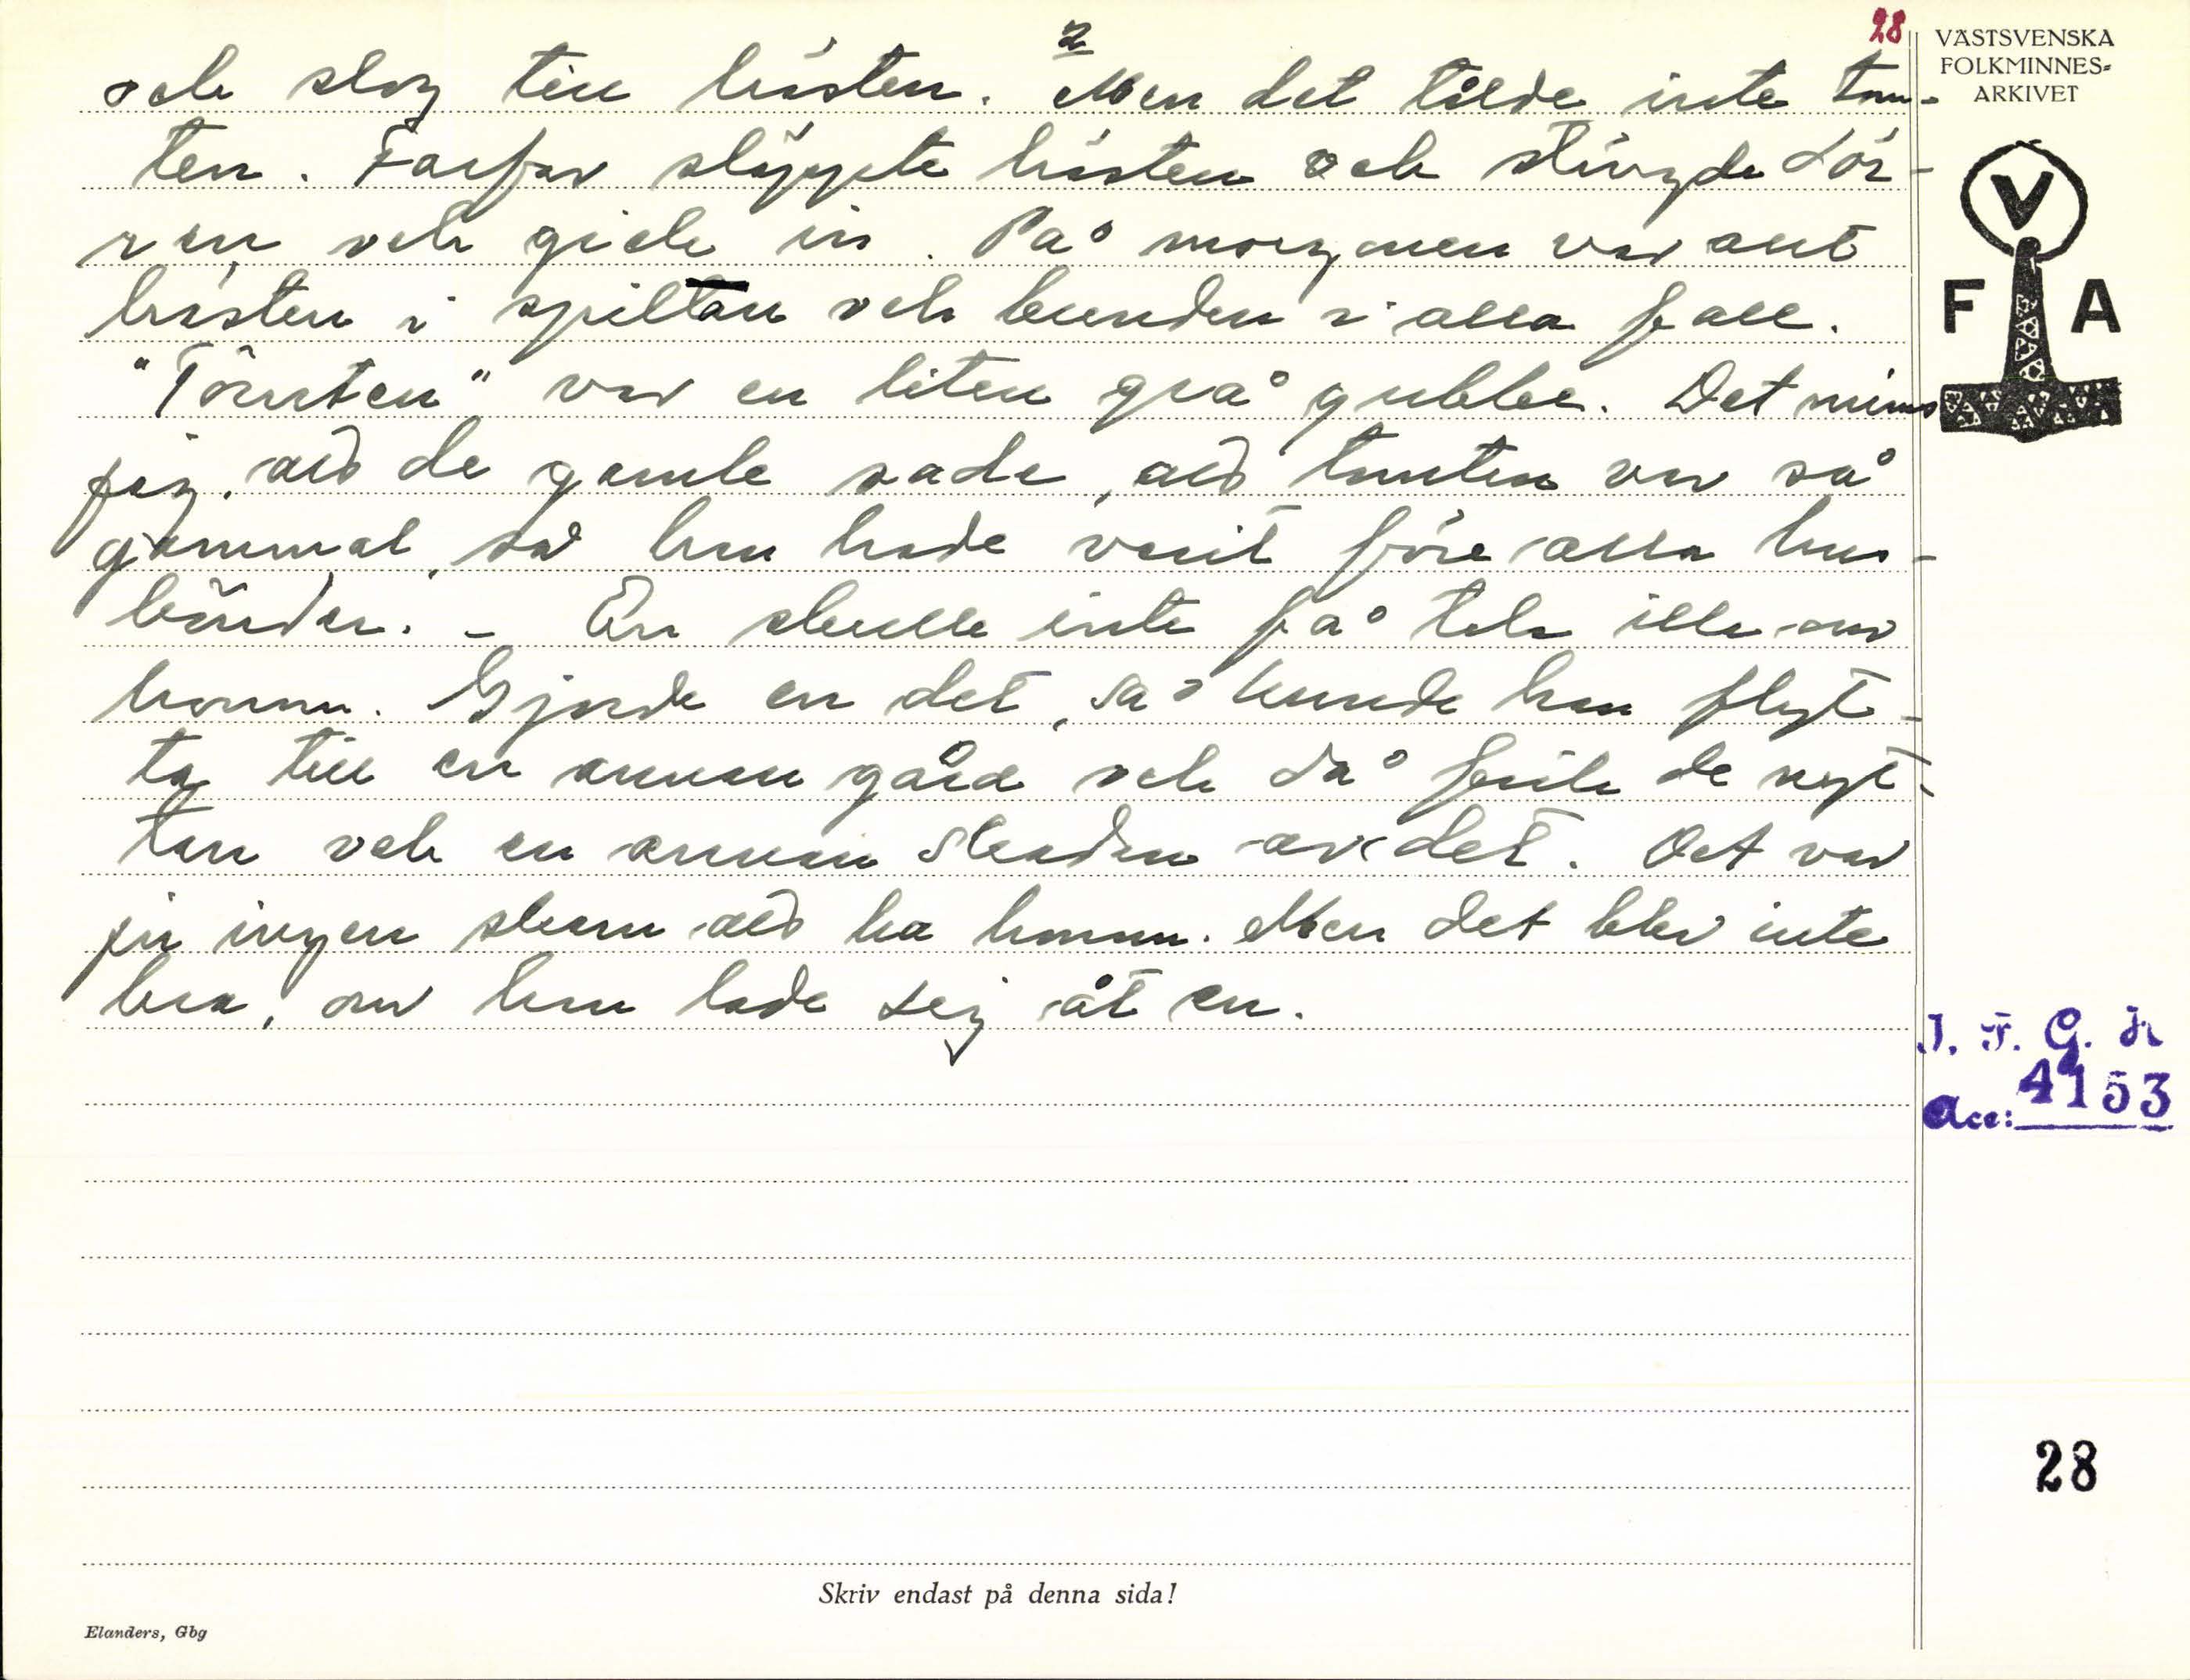 2
28
och slog till hästen. Men det tålde inte tom-
ten. Farfar släppte hästen och stängde dör-
ren och gick in. På morgonen var allt
hästen i spiltan och bunden i alla fall.
"Tomten" var en liten grå gubbe. Det minns
jag, att de gamle sade, att tomten var så
gammal, så han hade varit före alla hus-
bönder. - En skulle inte få tala illa om
honom. Gjorde en det, så kunde han flyt-
ta till en annan gård och då fick de nyt-
tan och en annan skadan av det. Det var
ju ingen skam att ha honom. Men det blev inte
bra, om han lade sej åt en.
VÄSTSVENSKA
FOLKMINNES-
ARKIVET
V
F A
I. F. G. H
Acc: 4153
28
Skriv endast på denna sida!
Elanders, Gbg